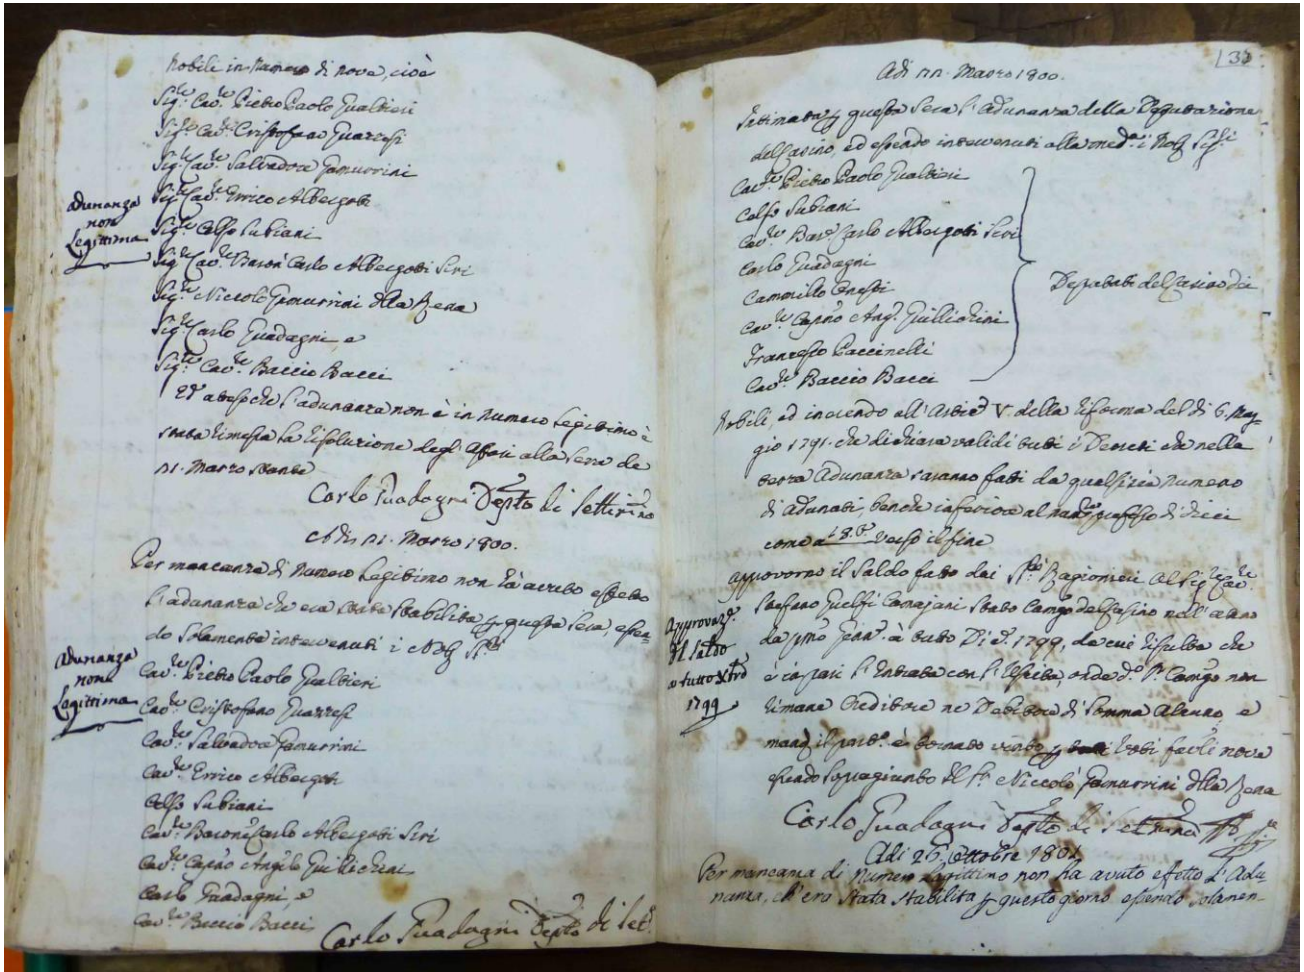 Nobili in numero di nove, cioè
Sig.re Cav.re Pietro Paolo Gualtieri
Sig.re Cav.re Cristofano Guazzesi
Sig.re Cav.re Salvadore Gamurrini
Sig.re Cav.re Errico Albergoti
Sig.re Celso Subiani
Sig.re Cav.re Baron Carlo Albergotti Siri
Sig.re Niccolò Gamurrini dlla Zena
Sig.re Carlo Guadagni, e
Sig.re Cav.re Baccio Bacci
Adunanza
non
Legittima
Ed atteso che l'adunanza non è in numero legitimo è
stata rimessa la risoluzione degl'affari alla sera de
21. Marzo stante
Carlo Guadagni Depto di Settimna
Adì 21. Marzo 1800.
Per mancanza di numero legitimo non hà avuto effetto
l'adunanza che era stata stabilita p questa sera, essen-
do solamente intervenuti i Nobj Sri
Cav.re Pietro Paolo Gualtieri
Cav.re Cristofano Guazzesi
Cav.re Salvadore Gamurrini
Cav.re Errico Albergoti
Celso Subiani
Cav.re Barone Carlo Albergotti Siri
Cav.re Angelo Guillichini
Carlo Guadagni, e
Cav.re Baccio Bacci
Adunanza
non
Legittima
Carlo Guadagni Depto di Set.
Adì 22. Marzo 1800.
Intimata p questa sera l'adunanza della Deputazione
del Casino, ed essendo intervenuti alla med.a i Nobj Sig.i
Cav.re Pietro Paolo Gualtieri
Celso Subiani
Cav.re Bar. Carlo Albergotti Siri
Carlo Guadagni
Cammillo
Cav.re Ang. Guillichini
Francesco Paccinelli
Cav.re Baccio Bacci
Deputati del Casino dei
Nobili, ed inerendo all'Artic. V. della riforma del dì 6. Mag-
gio 1791. che dichiara validi tutti i Decreti che nella
terza Adunanza saranno fatti da qualsisia numero
di adunati, benchè inferiore al prefisso di dieci
come a verso il fine
Approvorno il saldo fatto dai Sri Ragionieri al Sig.re Cav.re
Stefano Guelfi Camajani stato Camgo del Casino nell'anno
da pmo Genn. à tutto Di. 1799, da cui risulta che
è in pari l'Entrata con l'Uscita, onde d. Sr Camgo non
rimane Creditore ne Debitore di somma alcuna, e
mand. il part. è tornato vinto p voti favli nove
essendo sopragiunto il Sr Niccolò Gamurrini dlla Zena
Approvaze
dl Saldo
a tutto Xbre
1799
Carlo Guadagni Depto di Settimna
Adì 25. Ottobre 1801.
Per mancanza di numero Legittimo non ha avuto effetto l'Adu-
nanza, ch'era stata stabilita p questo giorno essendo solamen-